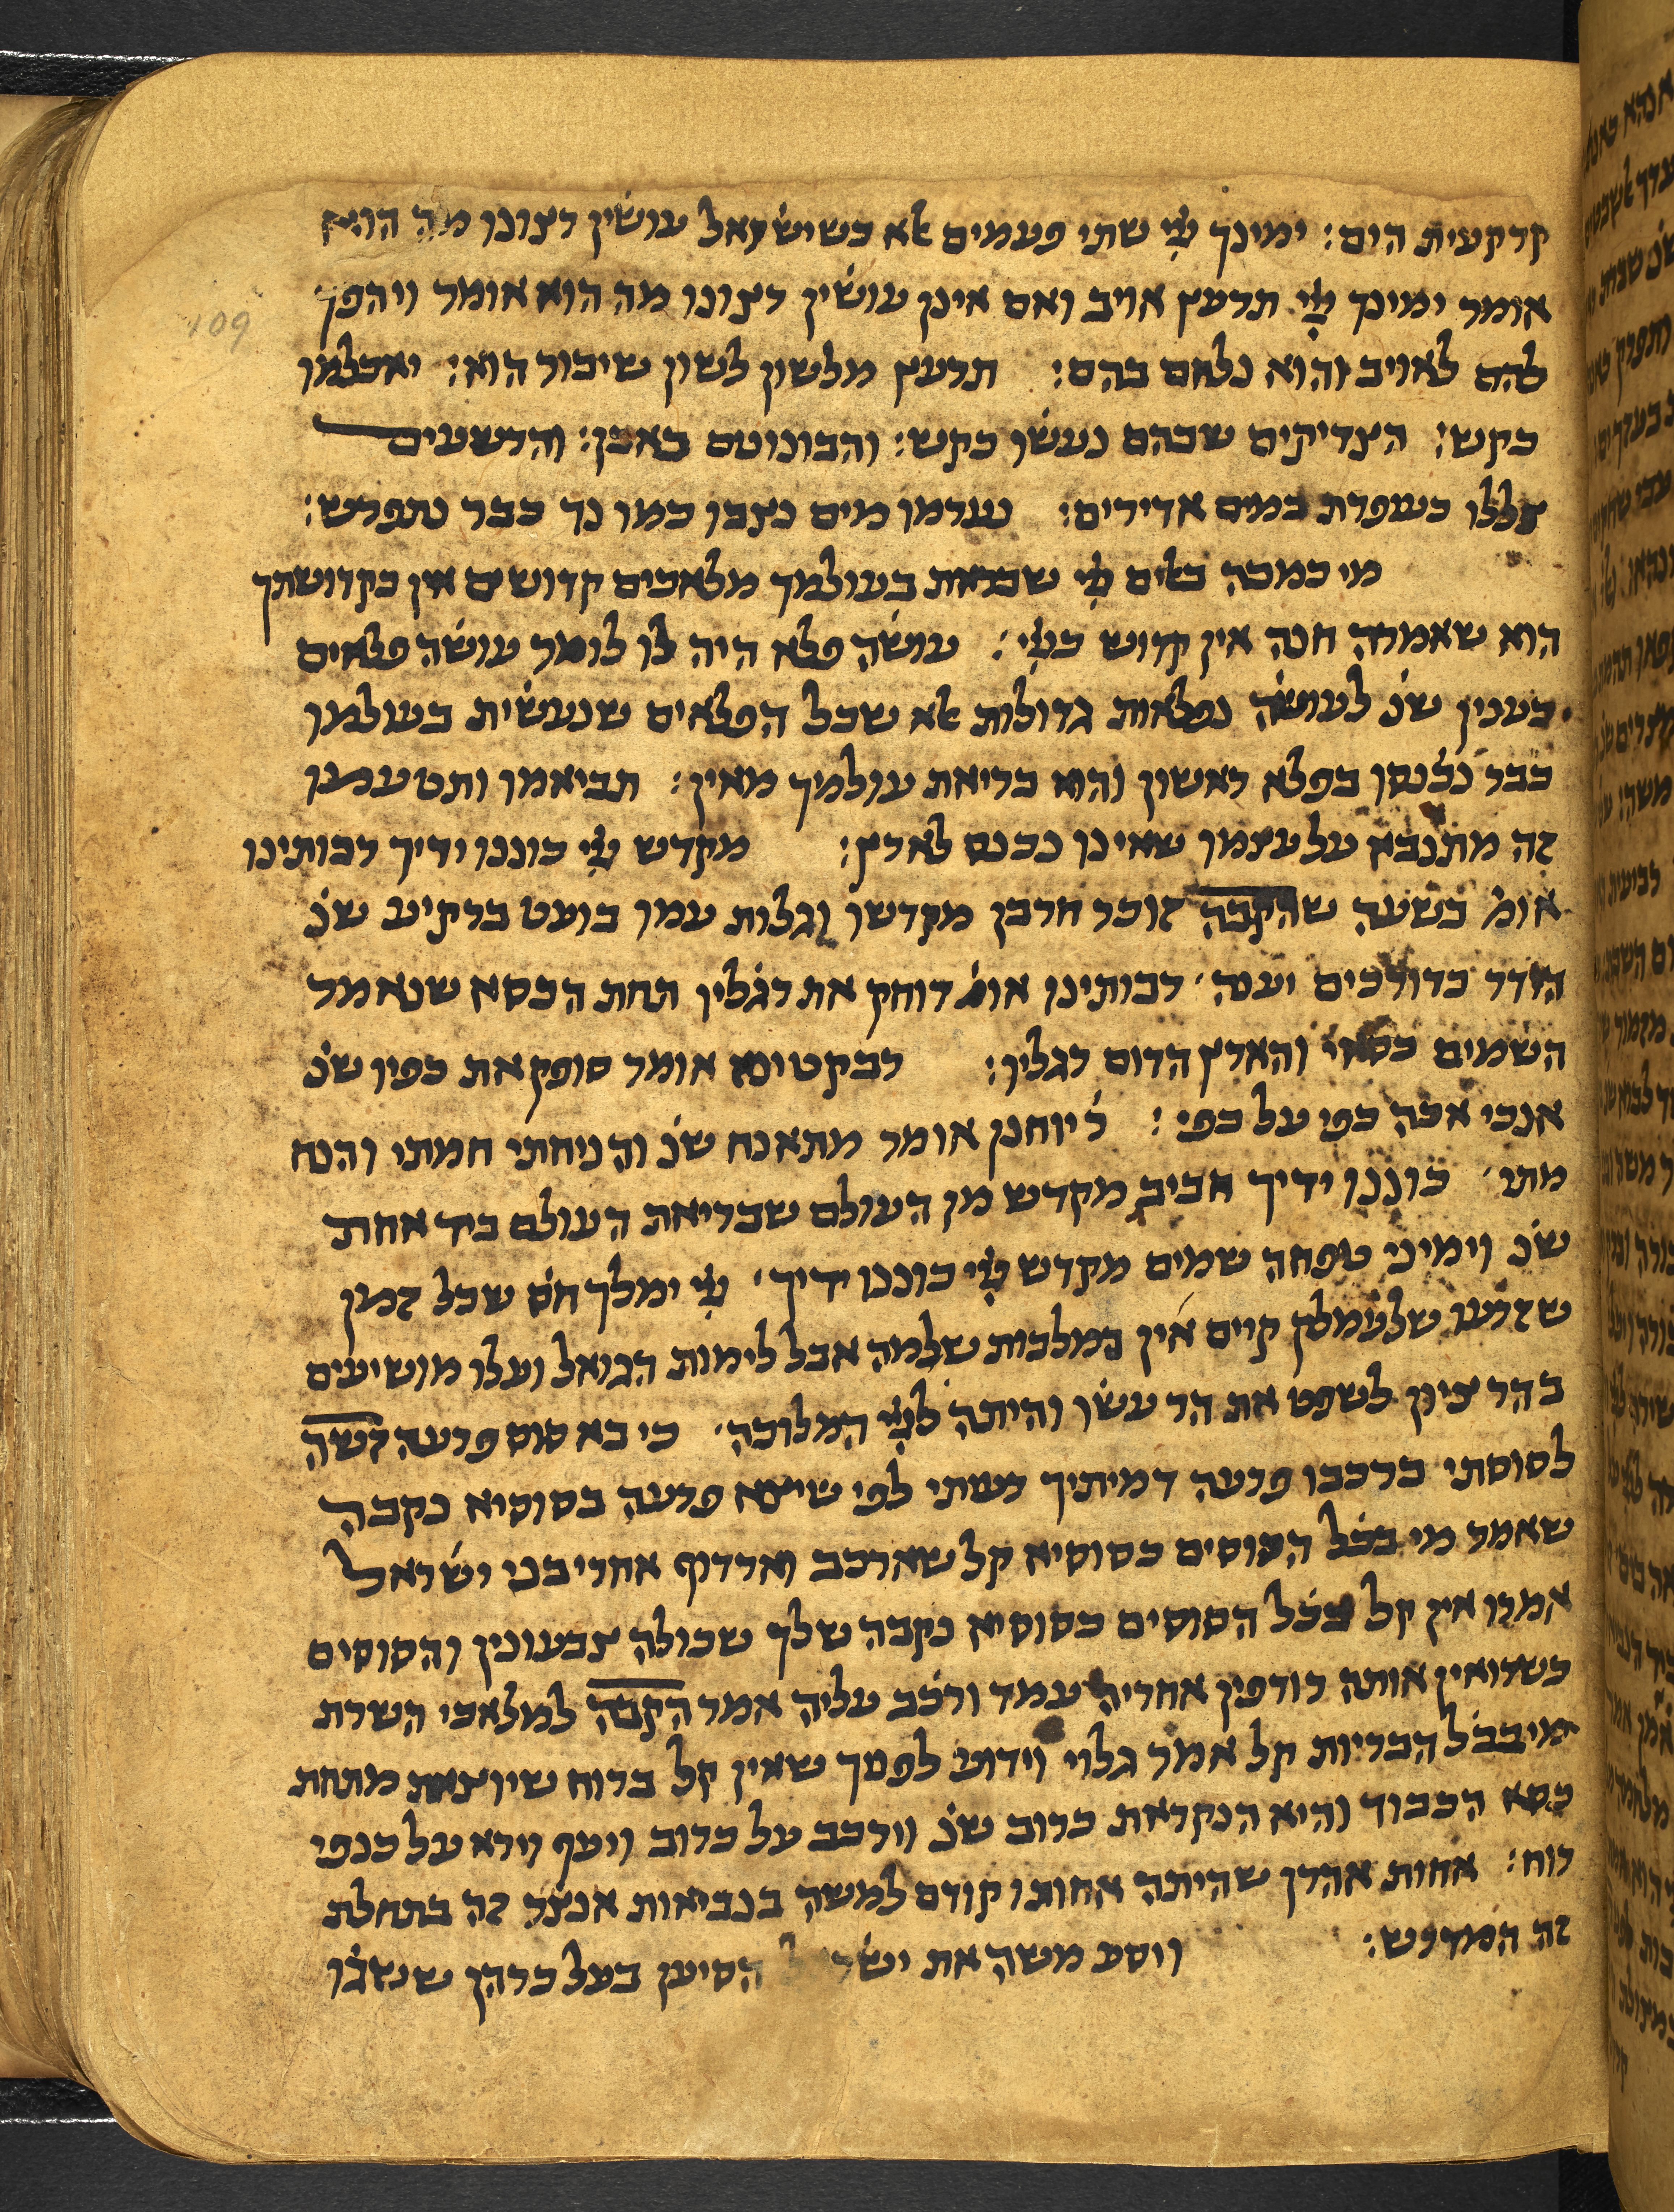 קרקעית הים: ימינך ייי שתי פעמים אלא כשישראל עושין רצונו מה הוא
אומר ימינך ייי תרעץ אויב ואם אינן עושין רצונו מה הוא אומר ויהפך
להם לאויב והוא נלחם בהם: תרעץ מלשון לשון שיבור הוא: יאכלמו
כקש: הצדיקים שבהם נעשו כקש: והבינונים כאבן: והרשעים
צללו כעופרת במים אדירים: נערמו מים נצבו כמו נד כבר נתפרש:
מי כמכה באלים ייי שבראת בעולמך מלאכים קדושים אין כקדושתך
הוא שאמרה חנה אין קדוש כייי: עושה פלא היה לו לומר עושה פלאים
כענין שנ לעושה נפלאות גדולות אלא שכל הפלאים שנעשית בעולמו
כבר נכנסו בפלא ראשון והוא בריאת עולמיך מאין: תביאמו ותטעמו
זה מתנבא על עצמו שאינו נכנס לארץ: מקדש ייי כוננו ידיך רבותינו
אומ בשעה שהקבה זוכר חרבן מקדשו וגלות עמו בועט ברקיע שנ
הידד כדורכים יענה רבותינו אומ דוחק את רגליו תחת הכסא שנאמר
השמים כסאי והארץ הדום רגליו: רבקטינא אומר סופק את כפיו שנ
אנכי אכה כפי על כפי: ר יוחנן אומר מתאנח שנ והניחתי חמתי והנח
מתי כוננו ידיך חביב מקדש מן העולם שבריאת העולם ביד אחת
שנ וימיני טפחה שמים מקדש ייי כוננו ידיך ייי ימלך חס שכל זמן
שזרעו שלעמלק קיים אין במלכות שלמה אבל לימות הגואל ועלו מושיעים
בהר ציון לשפט את הר עשו והיתה לייי המלוכה כי בא סוס פרעה זשה
לסוסתי ברכבו פרעה דמיתיך רעיתי לפי שיצא פרעה בסוסיא נקבה
שאמר מי בכל הסוסים כסוסיא קל שארכב וארדוף אחרי בני ישראל
אמרו אין קל בכל הסוסים כסוסיא נקבה שלך שכולה צבעונין והסוסים
כשרואין אותה רודפין אחריה עמד ורכב עליה אמר הקבה למלאכי השרת
מי בכל הבריות קל אמר גלוי וידוע לפניך שאין קל ברוח שיוצאת מתחת
כסא הכבוד והיא הנקראת כרוב שנ וירכב על כרוב ויעף וירא על כנפי
רוח: אחות אהרן שהיתה אחותו קודם למשה בנביאות אנצר זה בתחלת
זה המדרש: ויסע משה את ישראל הסיען בעל כרחן שעשו
109